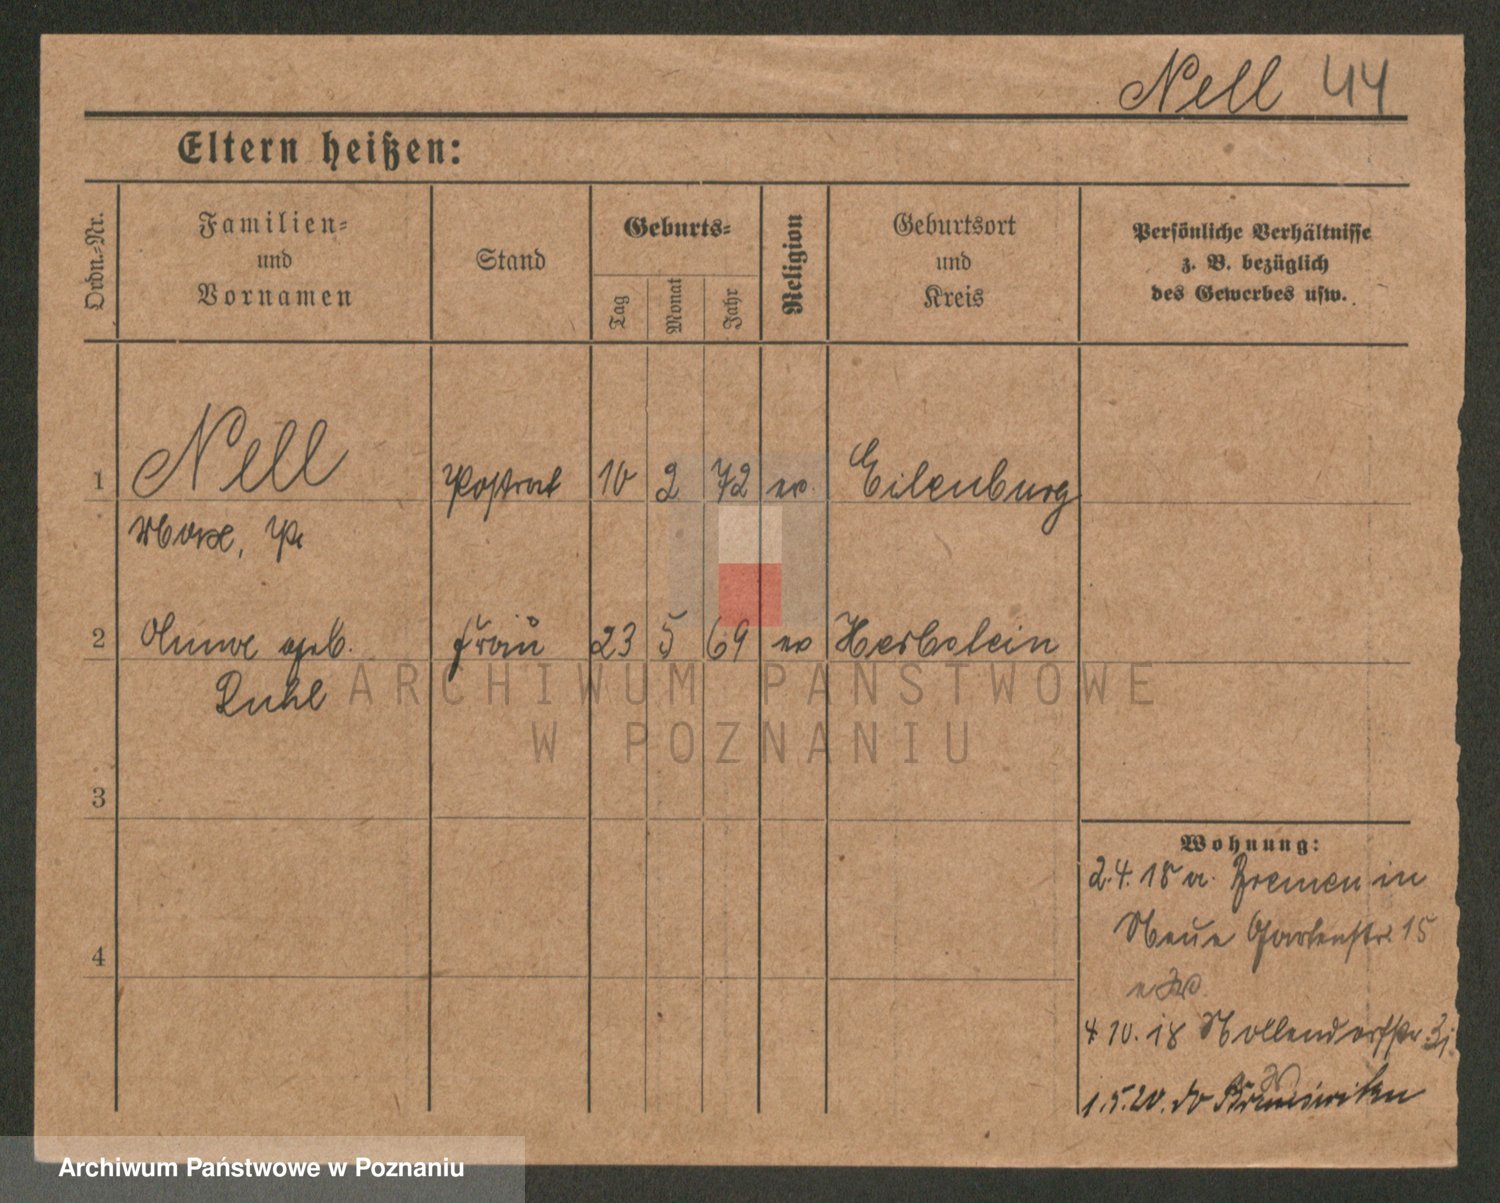 Nell 44
Eltern heißen:
Ordn.-Nr.
Familien-
und
Vornamen
Stand
Geburts-
Tag
Monat
Jahr
Religion
Geburtsort
und
Kreis
Persönliche Verhältnisse
z. B. bezüglich
des Gewerbes usw.
1 Nell Postrat 10 2 72 ev. Eilenburg
Max,
2 geb. Frau 23 5 69 ev Herbstein
Ruhl
ARCHIWUM PAŃSTWOWE
W POZNANIU
3
4
Wohnung:
2.4.18 a. Bremen in
Neue Gartenstr. 15
4 10. 18 Nollendorfstr.
1.5.20.
Archiwum Państwowe w Poznaniu